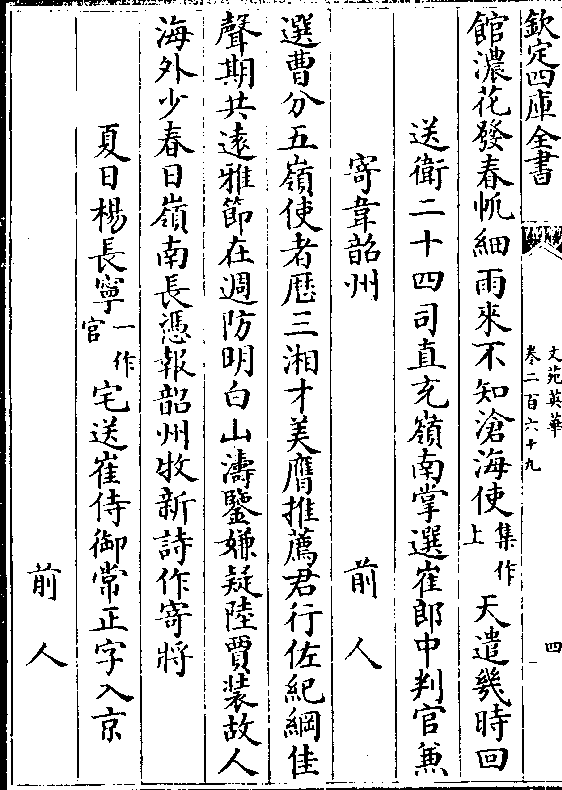 欽定四庫全書
文苑英華
卷二百六十九
四
館濃花發春帆細雨來不知滄海使集作上天遣幾時回
送衛二十四司直充嶺南掌選崔郎中判官兼
寄韋韶州
前人
選曹分五嶺使者歴三湘才美膺推薦君行佐紀綱佳
聲期共遠雅節在週防明白山濤鑒嫌疑陸賈装故人
海外少春日嶺南長憑報韶州牧新詩作寄將
夏日楊長寧一作官宅送崔侍御常正字入京
前人